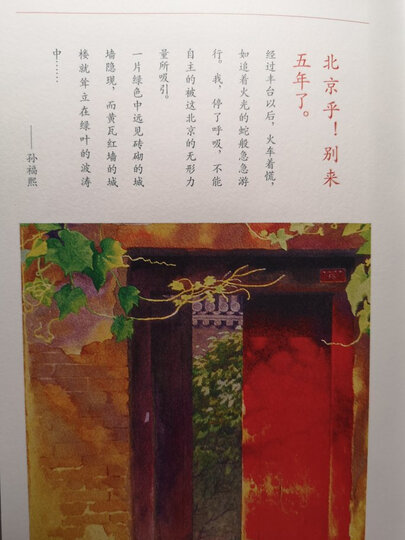 北京乎！别来
五年了。
经过丰台以后，火车着慌，
如追着火光的蛇般急急游
行。我，停了呼吸，不能
自主的被这北京的无形力
量所吸引。
一片绿色中远见砖砌的城
墙隐现，而黄瓦红墙的城
楼就耸立在绿叶的波涛
中……
——孙福熙